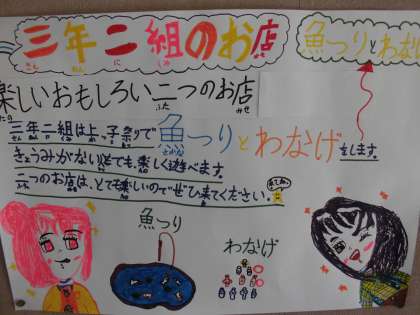 三年二組のお店
さん ねん に くみ みせ
魚つりとわなげ
楽しいおもしろい二つのお店
たの ふた みせ
三年二組は上っ子祭りで魚つりとわなげをします。
きょうみがない人でも、楽しく遊べます。
二つのお店は、とても楽しいのでぜひ来てください。
来てね。
魚つり
わなげ